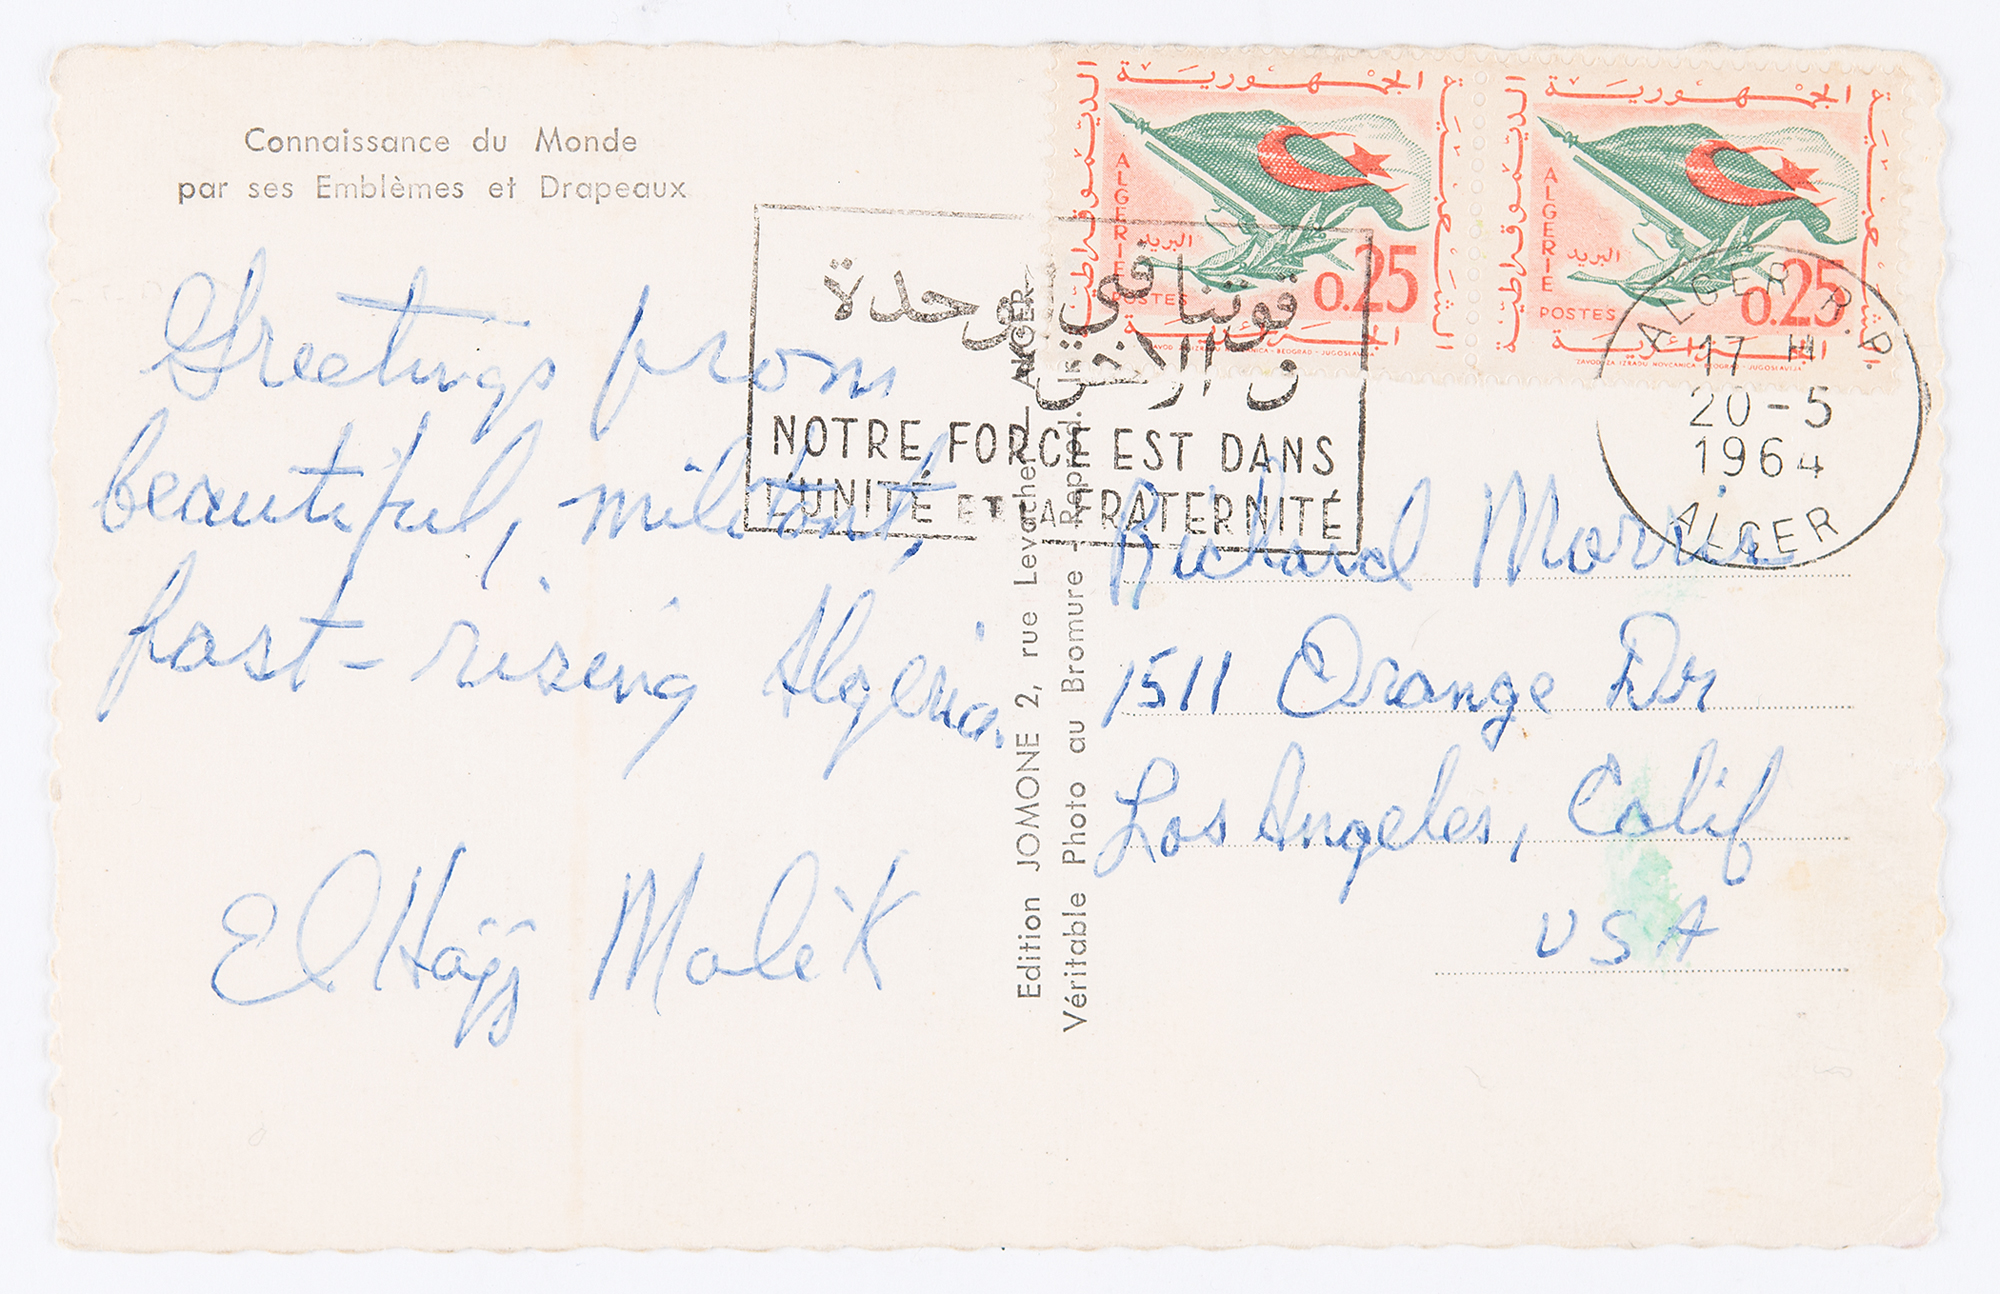 Connaissance du Monde
par ses Emblèmes et Drapeaux
Greetings from
beautiful, militant,
fast-rising Algeria.
El Hajj Malik
Edition JOMONE 2, rue Levacher ALGER
Véritable Photo au Bromure - Reprod.
قوتنا في الوحدة
و الاخوة
NOTRE FORCE EST DANS
L'UNITÉ ET LA FRATERNITÉ
الجمهورية
الديمقراطية
الشعبية
الجزائرية
ALGERIE
البريد
0.25
POSTES
ZAVOD ZA IZRADU NOVCANICA - BEOGRAD - JUGOSLAVIJA
الجمهورية
الديمقراطية
الشعبية
الجزائرية
ALGERIE
البريد
0.25
POSTES
ZAVOD ZA IZRADU NOVCANICA - BEOGRAD - JUGOSLAVIJA
ALGER R.P.
17 H
20-5
1964
ALGER
Richard Morris
1511 Orange Dr
Los Angeles, Calif
USA